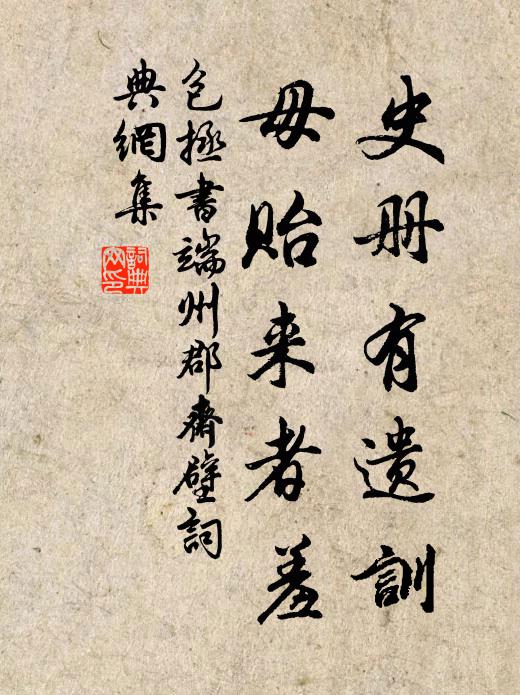 史册有遗訓
毋贻来者羞
包拯書端州郡齋壁詞
典網集
詞典
网印